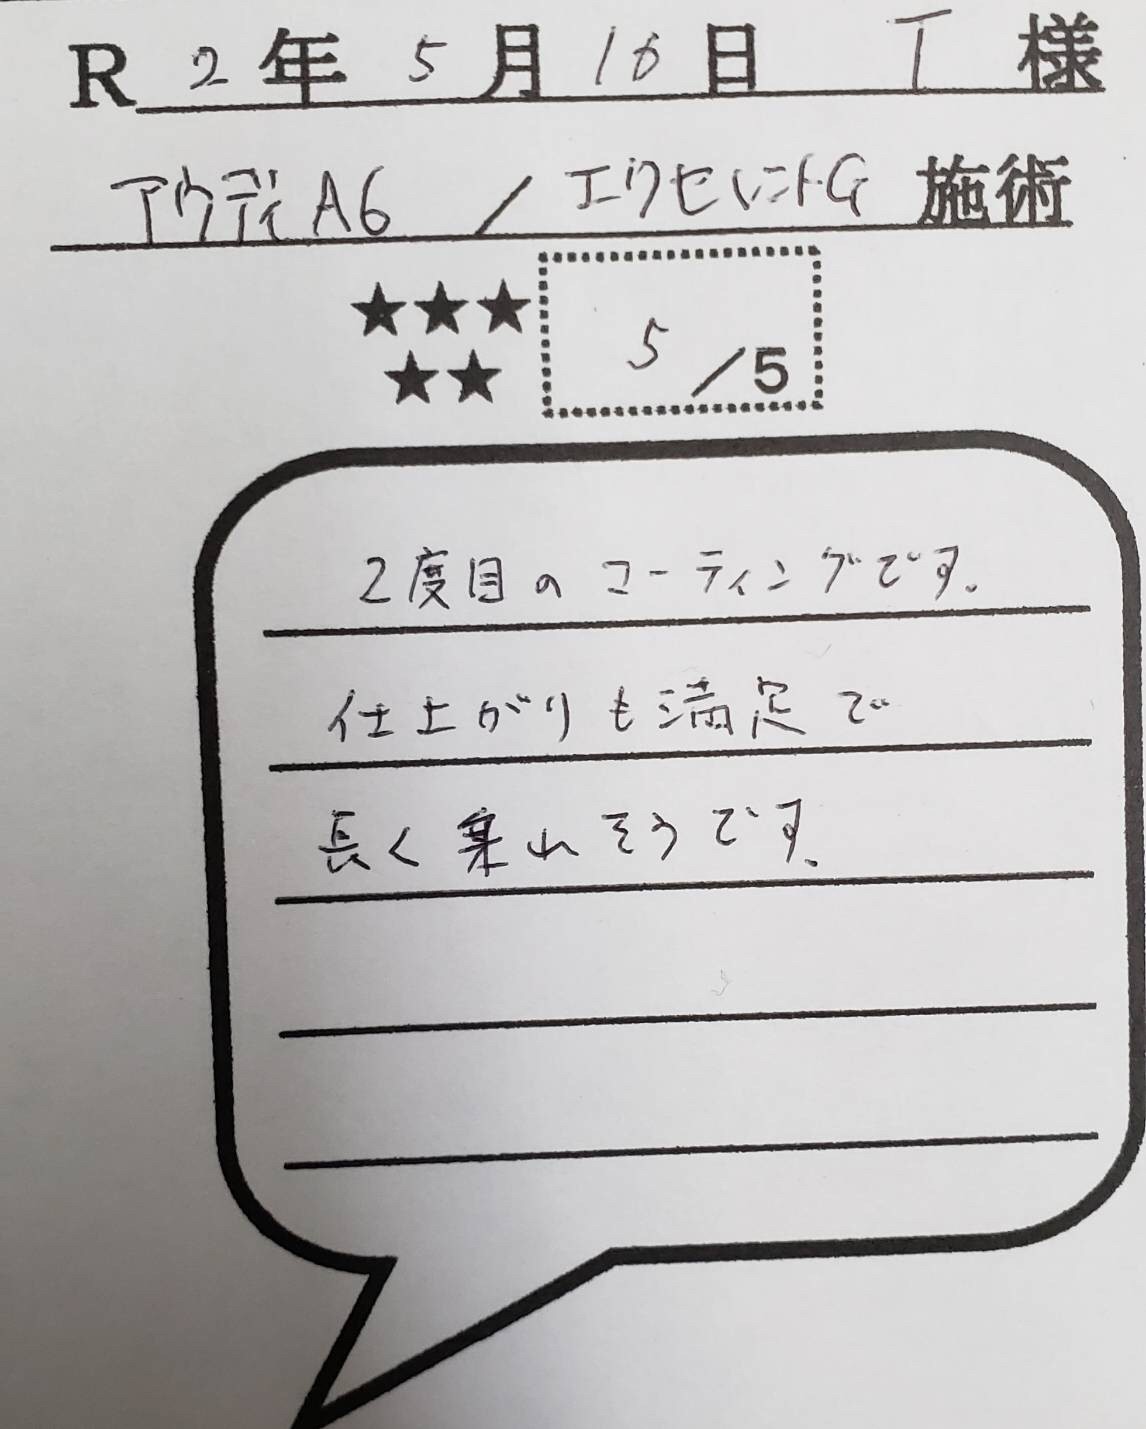 R 2年 5月 16日 T 様
アウディA6 / エクセレントG 施術
★★★
★★
5/5
2度目のコーティングです。
仕上がりも満足で
長く乗れそうです。